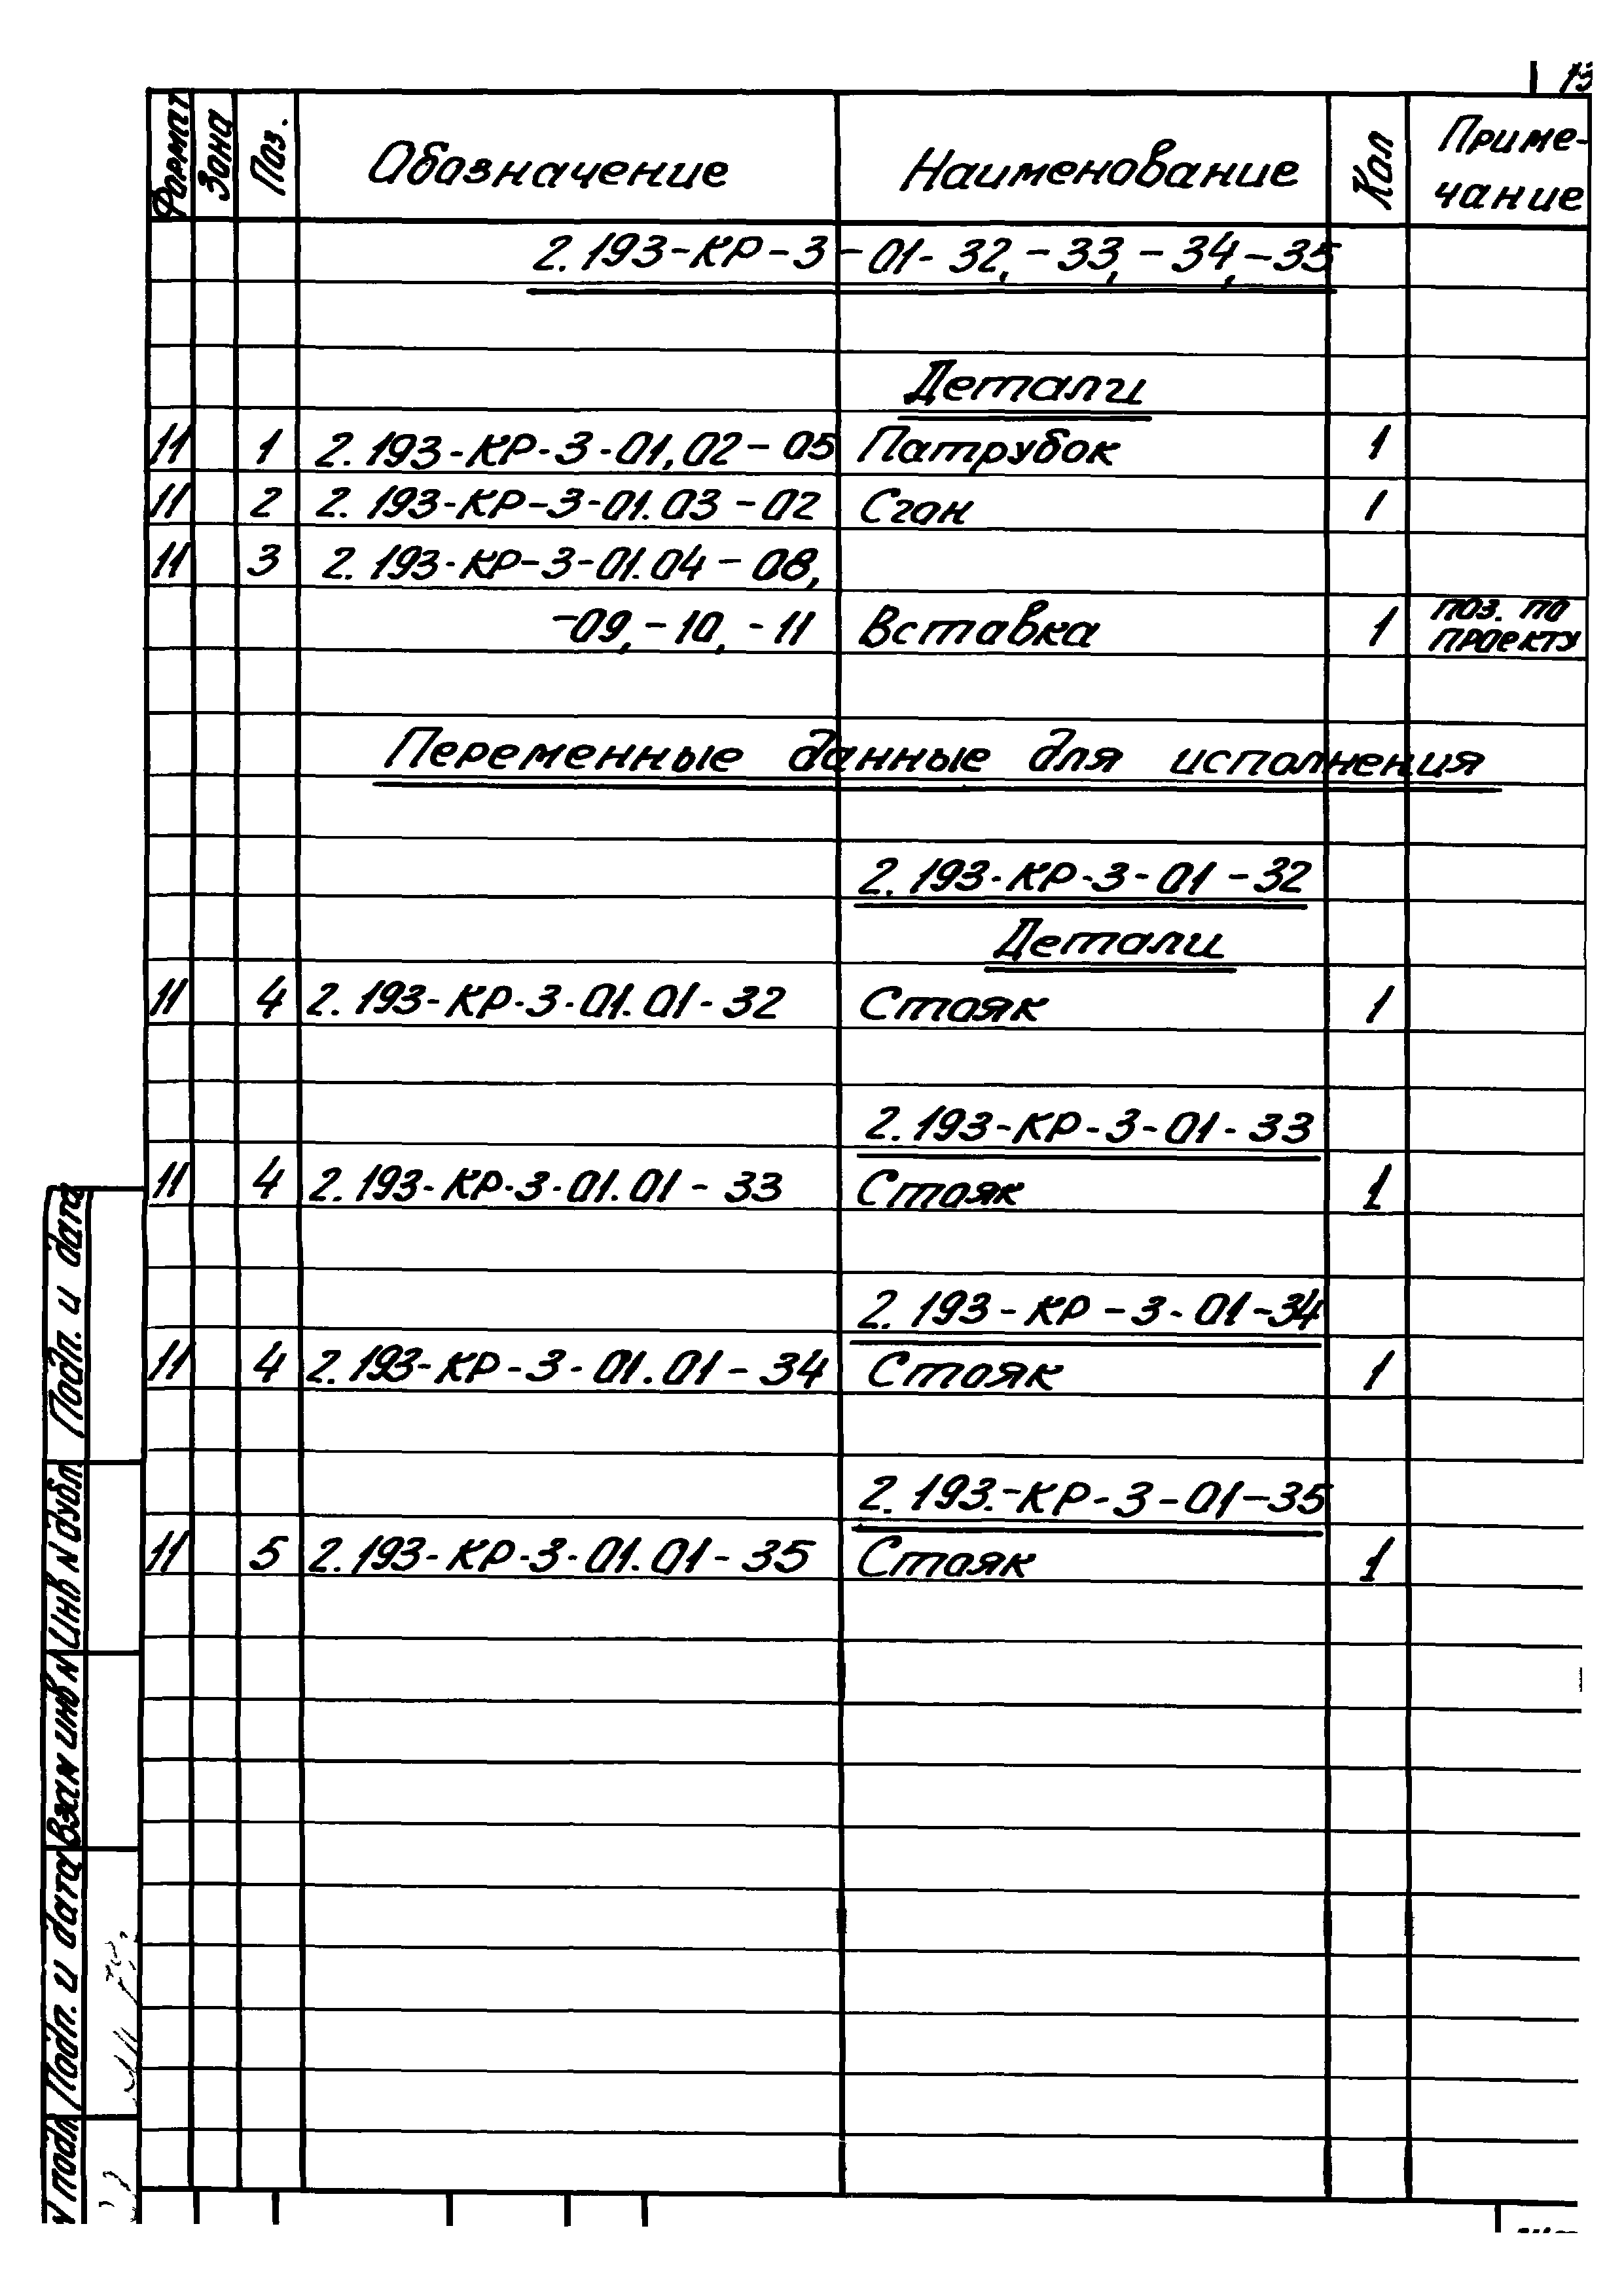 13
Формат Зона Поз. Обозначение Наименование Кол Приме-
чание
2.193-КР-3-01-32,-33,-34,-35
Детали
11 1 2.193-КР-3-01,02-05 Патрубок 1
11 2 2.193-КР-3-01.03-02 Сгон 1
11 3 2.193-КР-3-01.04-08,
-09,-10,-11 Вставка 1 поз. по
проекту
Переменные данные для исполнения
2.193-КР-3-01-32
Детали
11 4 2.193-КР-3-01.01-32 Стояк 1
2.193-КР-3-01-33
11 4 2.193-КР-3-01.01-33 Стояк 1
2.193-КР-3-01-34
11 4 2.193-КР-3-01.01-34 Стояк 1
2.193.-КР-3-01-35
11 5 2.193-КР-3-01.01-35 Стояк 1
Подп. и дата
Инв N дубл.
Взам инв N
Подп. и дата
N подл